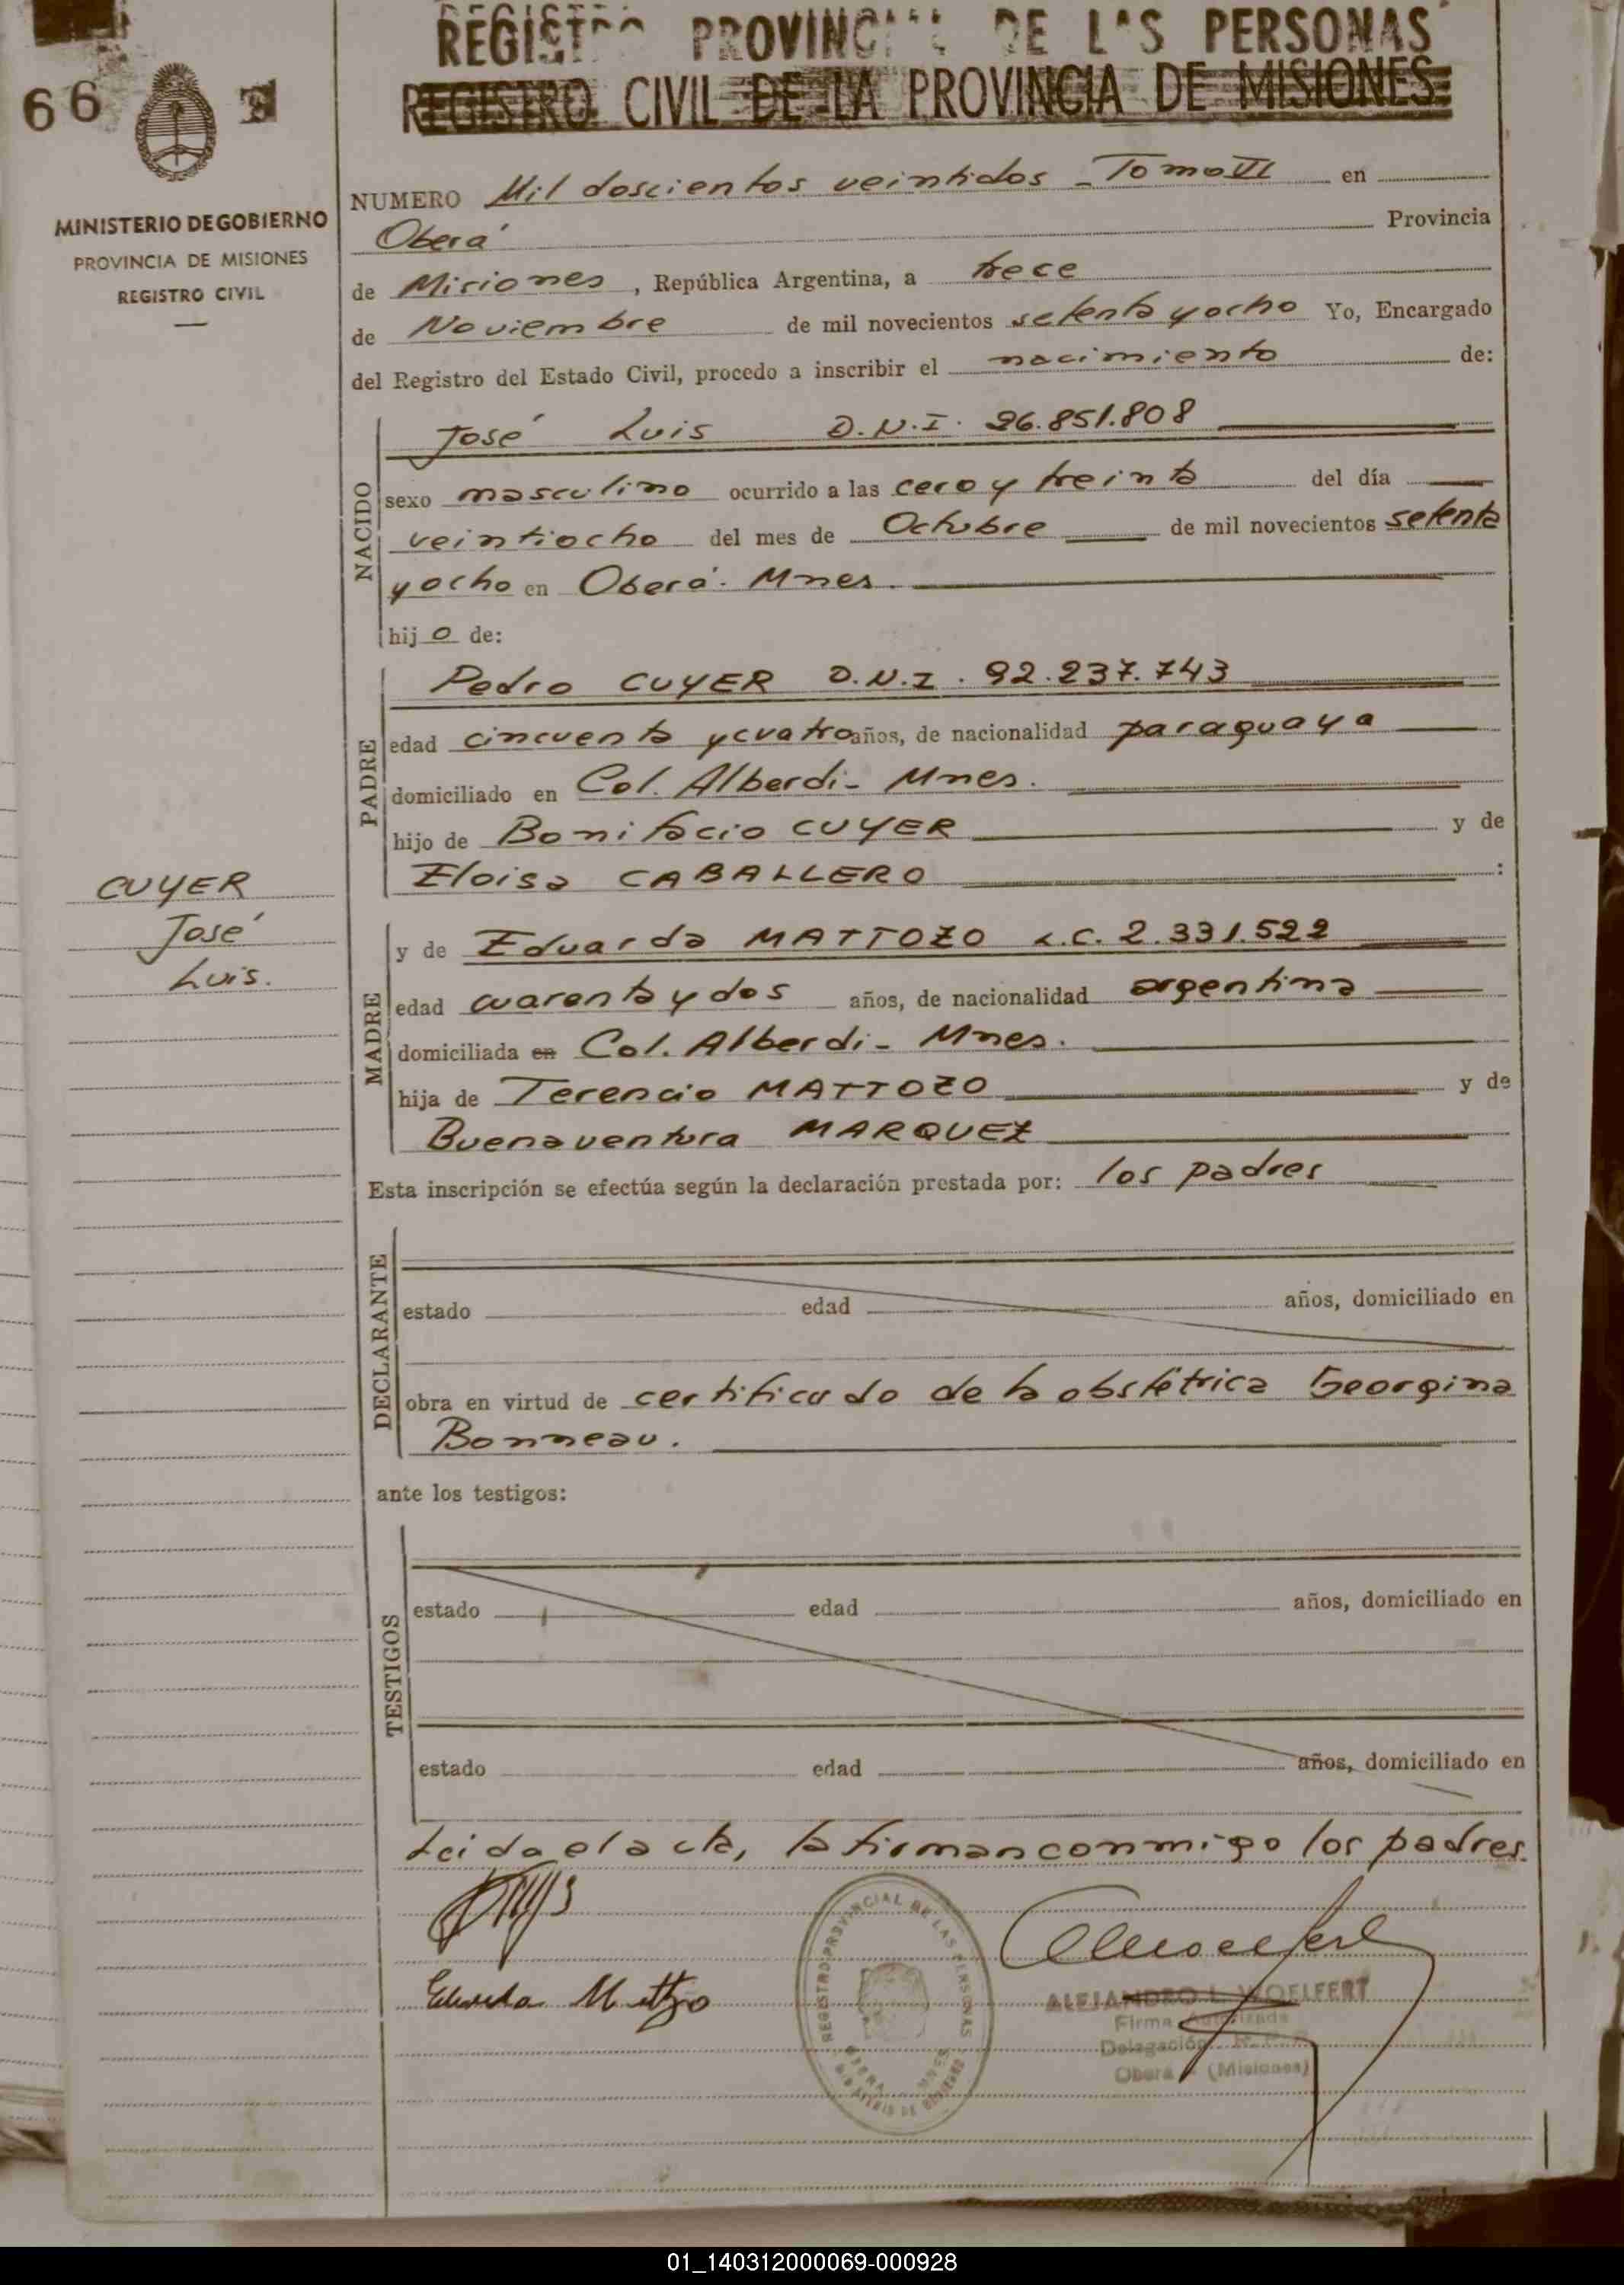 REGISTRO PROVINCIAL DE LAS PERSONAS
REGISTRO CIVIL DE LA PROVINCIA DE MISIONES
66
MINISTERIO DE GOBIERNO
PROVINCIA DE MISIONES
REGISTRO CIVIL
NUMERO Mil doscientos veintidos - Tomo VI en
Oberá Provincia
de Misiones, República Argentina, a trece
de Noviembre de mil novecientos setenta y ocho Yo, Encargado
del Registro del Estado Civil, procedo a inscribir el nacimiento de:
NACIDO
José Luis D.N.I. 26.851.808
sexo masculino ocurrido a las cero y treinta del día
veintiocho del mes de Octubre de mil novecientos setenta
y ocho en Oberá. Mnes.
hijo de:
PADRE
Pedro CUYER D.N.I. 92.237.743
edad cincuenta y cuatro años, de nacionalidad paraguaya
domiciliado en Col. Alberdi - Mnes.
hijo de Bonifacio CUYER y de
Eloisa CABALLERO :
CUYER
José
Luis.
MADRE
y de Eduarda MATTOZO L.C. 2.331.522
edad cuarenta y dos años, de nacionalidad argentina
domiciliada en Col. Alberdi - Mnes.
hija de Terencio MATTOZO y de
Buenaventura MARQUEZ
Esta inscripción se efectúa según la declaración prestada por: los padres
DECLARANTE
estado edad años, domiciliado en
obra en virtud de certificado de la obstétrica Georgina
Bonneau.
ante los testigos:
TESTIGOS
estado edad años, domiciliado en
estado edad años, domiciliado en
Leida el acta, la firman conmigo los padres.
Eduarda Mattozo
REGISTRO PROVINCIAL DE LAS PERSONAS
OBERA MNES
MINISTERIO DE GOBIERNO
ALEJANDRO L. WOELFERT
Firma Autorizada
Delegación R. P. P.
Oberá - (Misiones)
01_140312000069-000928